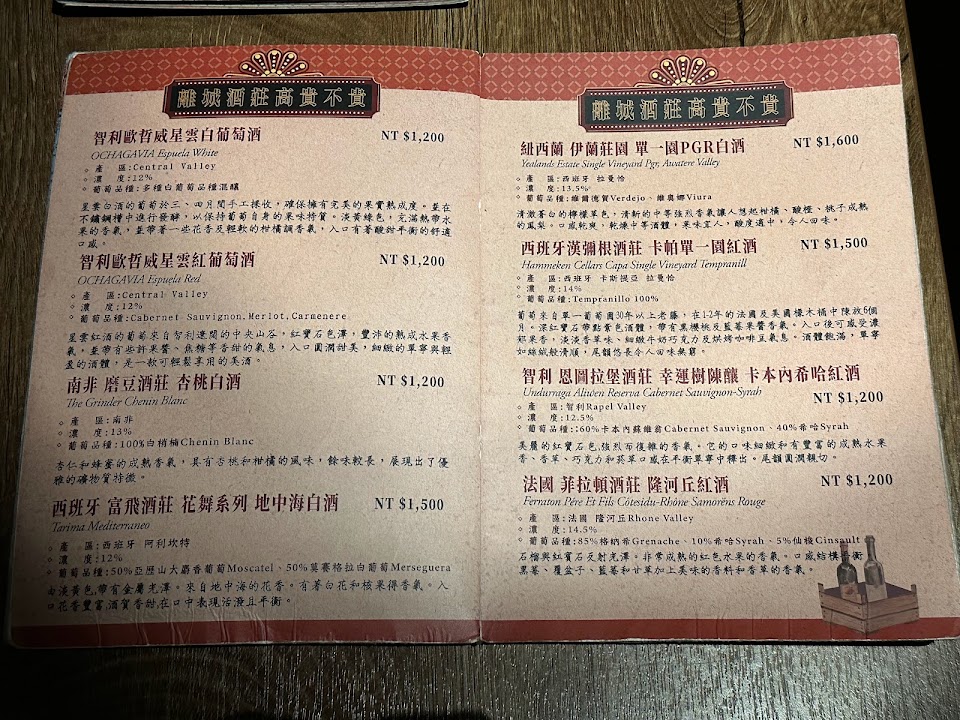 離城酒莊高貴不貴
智利歐哲威星雲白葡萄酒 NT $1,200
OCHAGAVIA Espuela White
產 區:Central Valley
濃 度:12%
葡萄品種:多種白葡萄品種混釀
星雲白酒的葡萄於三、四月間手工採收,確保擁有完美的果實熟成度。並在
不鏽鋼槽中進行發酵,以保持葡萄自身的果味特質。淡黃綠色,充滿熱帶水
果的香氣,並帶著一些花香及輕軟的柑橘調香氣,入口有著酸甜平衡的舒適
口感。
智利歐哲威星雲紅葡萄酒 NT $1,200
OCHAGAVIA Espuela Red
產 區:Central Valley
濃 度:12%
葡萄品種:Cabernet Sauvignon,Merlot,Carmenere
星雲紅酒的葡萄來自智利遼闊的中央山谷,紅寶石色澤,豐沛的熟成水果香
氣,並帶有些許果醬、焦糖等香甜的氣息,入口圓潤甜美,細緻的單寧與輕
盈的酒體,是一款可輕鬆享用的美酒。
南非 磨豆酒莊 杏桃白酒 NT $1,200
The Grinder Chenin Blanc
產 區:南非
濃 度:13%
葡萄品種:100%白梢楠Chenin Blanc
杏仁和蜂蜜的成熟香氣,具有杏桃和柑橘的風味,餘味較長,展現出了優
雅的礦物質特徵。
西班牙 富飛酒莊 花舞系列 地中海白酒 NT $1,500
Tarima Mediterraneo
產 區:西班牙 阿利坎特
濃 度:12%
葡萄品種:50%亞歷山大麝香葡萄Moscatel、50%莫賽格拉白葡萄Merseguera
白淡黃色,帶有金屬光澤。來自地中海的花香。有著白花和核果得香氣。入
口花香豐富,酒質香甜在口中表現活潑且平衡。
離城酒莊高貴不貴
紐西蘭 伊蘭莊園 單一園PGR白酒 NT $1,600
Yealands Estate Single Vineyard Pgr, Awatere Valley
產 區:西班牙 拉曼恰
濃 度:13.5%
葡萄品種:維爾德賀Verdejo、維奧娜Viura
清澈蒼白的檸檬草色,清新的中等強烈香氣讓人想起柑橘、酸橙、桃子成熟
的鳳梨。口感乾爽,乾燥中等酒體,果味宜人,酸度適中,令人回味。
西班牙漢彌根酒莊 卡帕單一園紅酒 NT $1,500
Hammeken Cellars Capa Single Vineyard Tempranill
產 區:西班牙 卡斯提亞 拉曼恰
濃 度:14%
葡萄品種:Tempranillo 100%
葡萄來自單一葡萄園30年以上老藤,在1-2年的法國及美國橡木桶中陳放6個
月。深紅寶石帶點紫色酒體,帶有黑櫻桃及藍莓果醬香氣。入口後可感受濃
郁果香,淡淡香草味、細緻牛奶巧克力及烘烤咖啡豆氣息。酒體飽滿,單寧
如絲絨般滑順,尾韻悠長令人回味無窮。
智利 恩圖拉堡酒莊 幸運樹陳釀 卡本內希哈紅酒
Undurraga Aliwen Reserva Cabernet Sauvignon-Syrah NT $1,200
產 區:智利Rapel Valley
濃 度:12.5%
葡萄品種:60%卡本內蘇維翁Cabernet Sauvignon、40%希哈Syrah
美麗的紅寶石色,強烈而復雜的香氣。它的口味細緻和有豐富的成熟水果
香、香草、巧克力和菸草口感在平衡單寧中釋出。尾韻圓潤親切。
法國 菲拉頓酒莊 隆河丘紅酒 NT $1,200
Ferraton Père Et Fils Côtesidu-Rhône Samorëns Rouge
產 區:法國 隆河丘Rhone Valley
濃 度:14.5%
葡萄品種:85%格納希Grenache、10%希哈Syrah、5%仙梭Cinsault
石榴與紅寶石反射光澤。非常成熟的紅色水果的香氣。口感結構平衡
黑莓、覆盆子、藍莓和甘草加上美味的香料和香草的香氣。